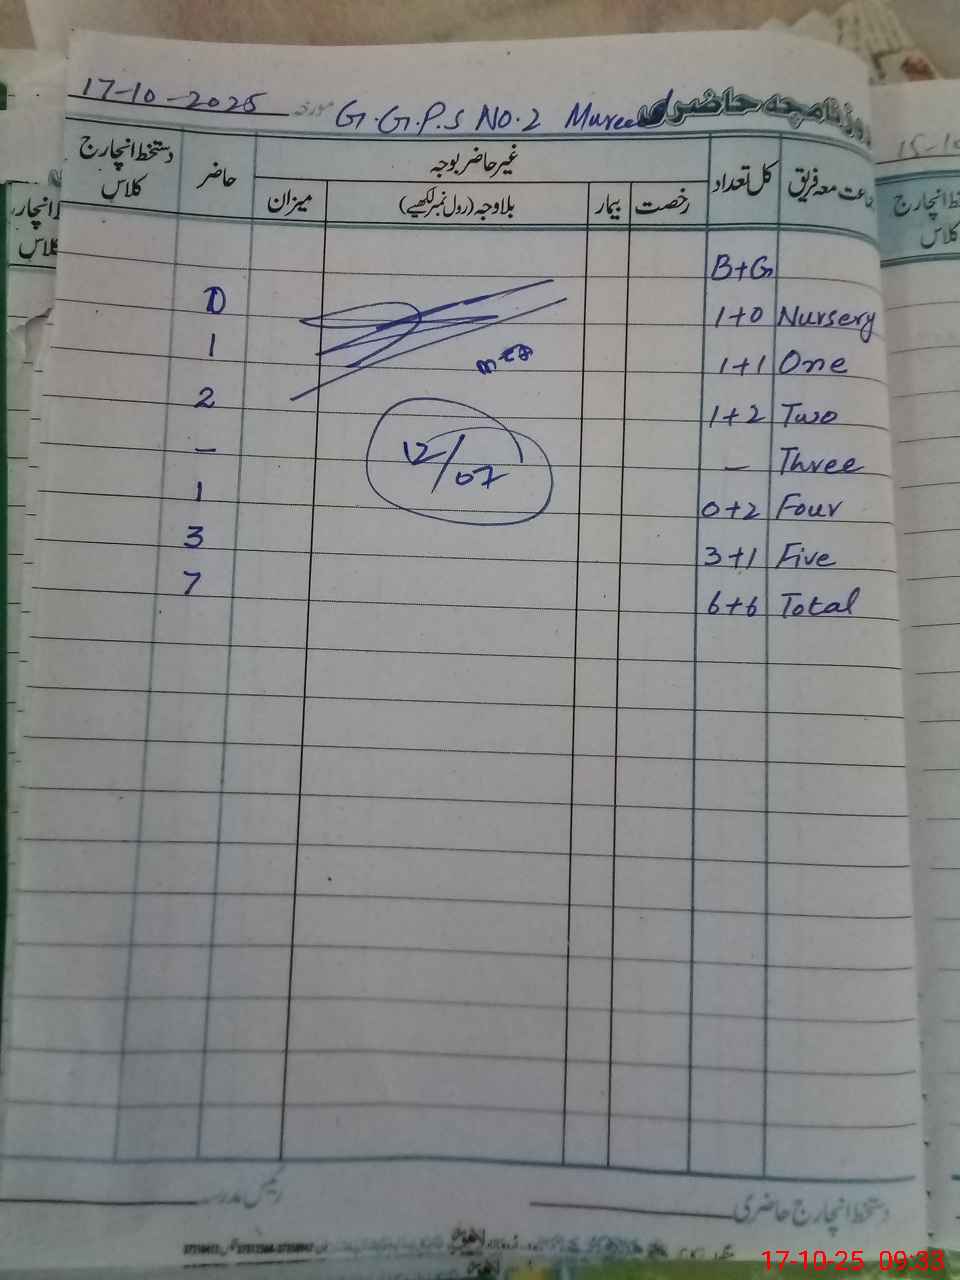 17-10-2025 مورخہ G.G.P.S No.2 روزنامچہ حاضری
جماعت معہ فریق کل تعداد غیر حاضر بوجہ حاضر دستخط انچارج کلاس
رخصت بیمار بلاوجہ (رول نمبر لکھیے) میزان
B+G
Nursery 1+0
One 1+1 1
Two 1+2 2
Three – –
Four 0+2 1
Five 3+1 3
Total 6+6 7
12/07
دستخط انچارج حاضری رئیس مدرسہ
17-10-25 09:33